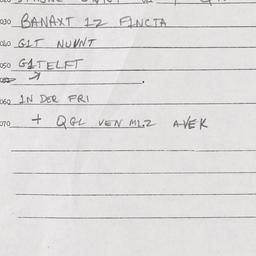 030 BANAXT 12 FINCTA
040 G1T NUNNT
050 G1TELFT
060 IN DER FRI
070 + QGL VEN M1.2 AVEK